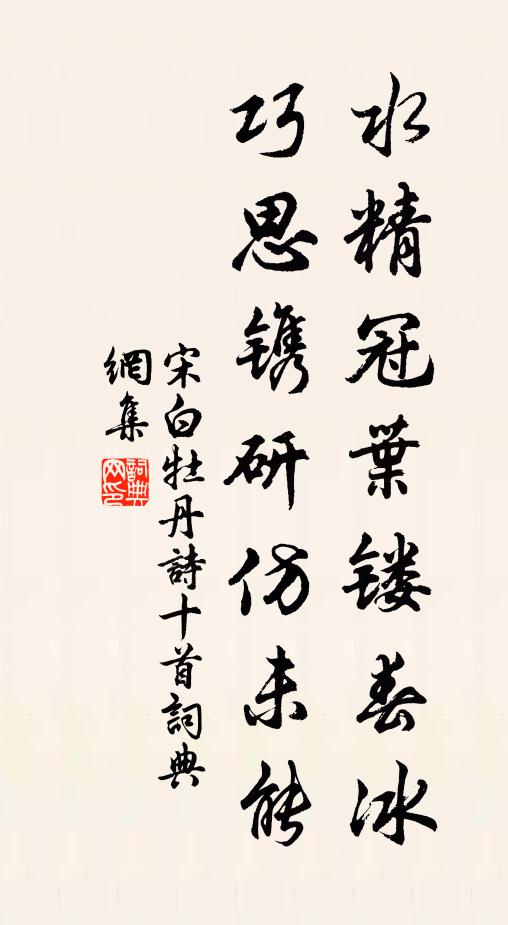 水精冠葉镂春冰
巧思镌研仿未能
宋白牡丹詩十首詞典
網集
詞典
网印